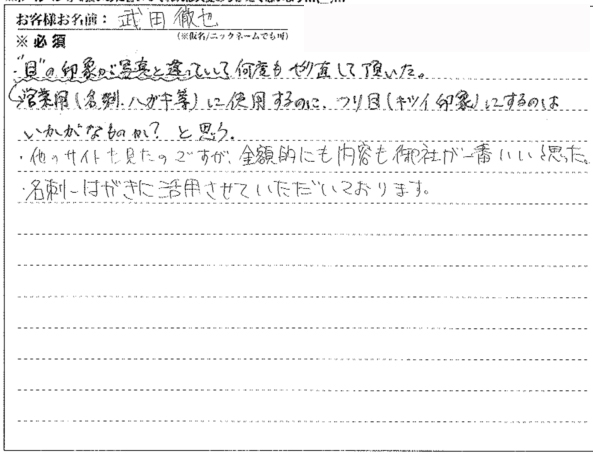 お客様お名前： 武田徹也
※必須 （※仮名/ニックネームでも可）
・"目"の印象が写真と違っていて何度もやり直して頂いた。
営業用（名刺・ハガキ等）に使用するのに、つり目（キツイ印象）にするのは
いかがなものか？と思う。
・他のサイトも見たのですが、金額的にも内容も御社が一番いいと思った。
・名刺・はがきに活用させていただいております。